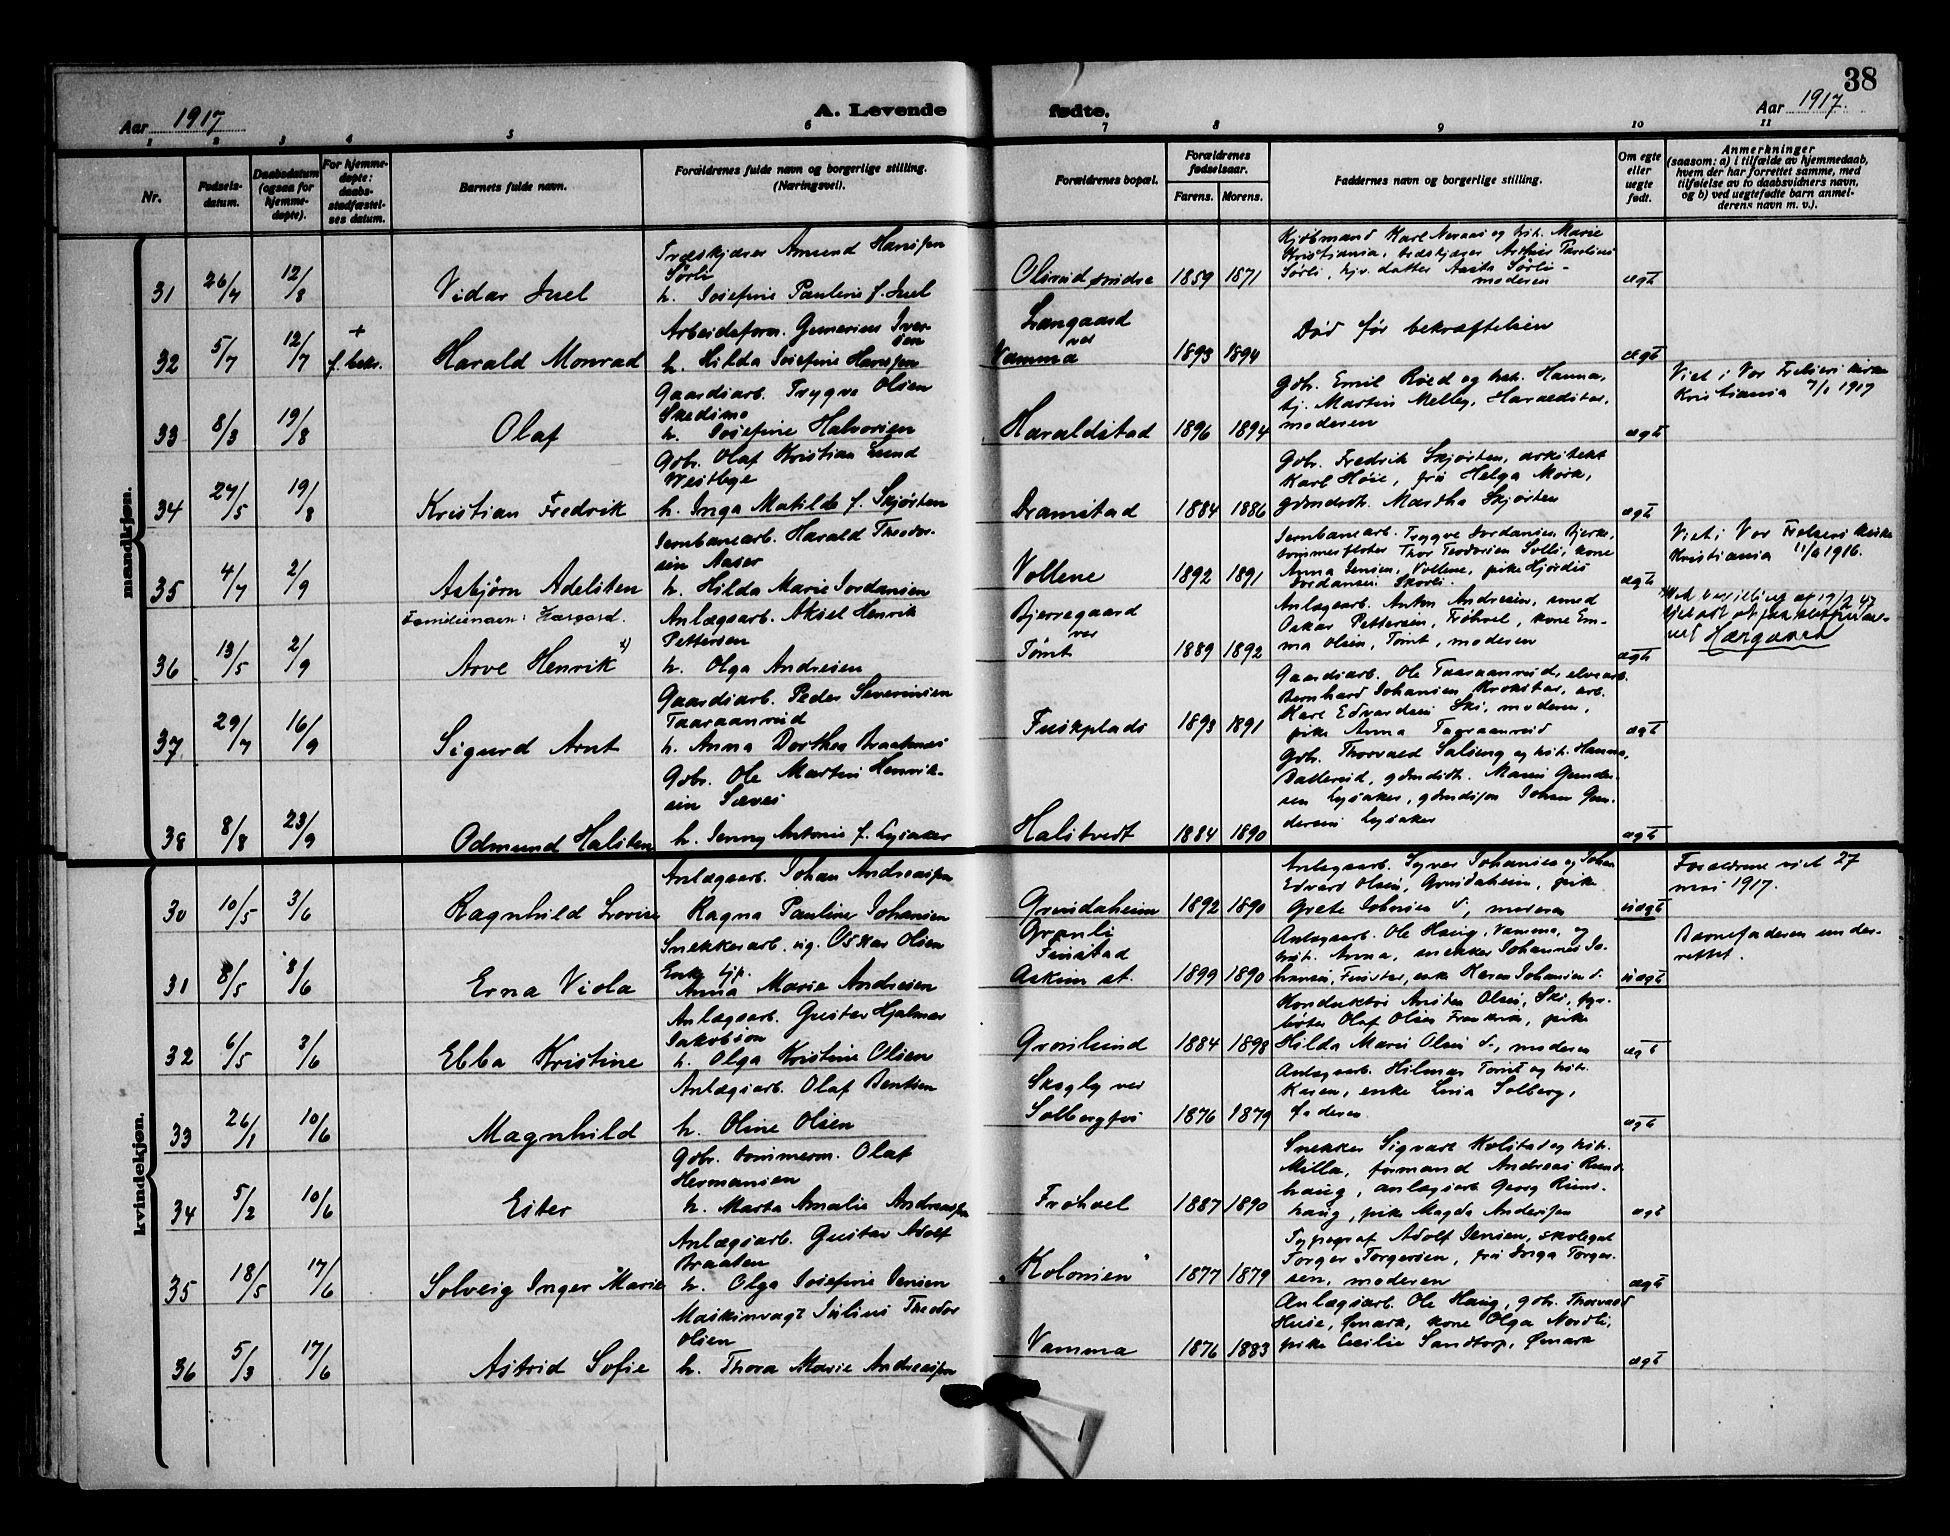 38
Aar 1917
A. Levende
fødte.
Aar 1917.
1 2 3 4 5 6 7 8 9 10 11
Nr.
Fødsels-
datum.
Daabsdatum
(ogsaa for
hjemme-
døpte).
For hjemme-
døpte:
daabs-
stadfæstel-
ses datum.
Barnets fulde navn.
Forældrenes fulde navn og borgerlige stilling.
(Næringsvei).
Forældrenes bopæl.
Forældrenes
fødselsaar.
Farens. Morens.
Faddernes navn og borgerlige stilling.
Om egte
eller
uegte
født.
Anmerkninger
(saasom: a) i tilfælde av hjemmedaab,
hvem der har forrettet samme, med
tilføielse av to daabsvidners navn,
og b) ved uegtefødte barn anmel-
derens navn m. v.).
mandkjøn.
31 26/7 12/8 Vidar Juel
Træskjærer Amund Hansen
Sørli
h. Josefine Pauline f. Juel
Olsrud søndre 1859 1871
Kjøbmand Karl Neraas og hst. Marie
Kristiania, træskjærer Arthur Paulius
Sørli, hjv. datter Aasta Sørli -
moderen
ægt
32 5/7 12/7 + f. bekr. Harald Monrad
Arbeidsform. Gunerius Iver-
sen
h. Hilda Josefine Hansen
Langaard
ved
Vamma 1893 1894
Død før bekræftelsen
ægt
33 8/3 19/8 Olaf
Gaardsarb. Trygve Olsen
Skedsmo
h. Josefine Halvorsen
Haraldstad 1896 1894
Gbr. Emil Røed og hst. Hanna,
tj. Martin Melby, Haraldstad,
moderen
ægt
Viet i Vor Frelsers kirke
Kristiania 7/1 1917
34 27/5 19/8 Kristian Fredrik
Gbr. Olaf Kristian Lund
Westbye
h. Inga Matilde f. Skjørten
Dramstad 1884 1886
Gbr. Fredrik Skjørten, arkitekt
Karl Høie, frk Helga Mørk,
gdmdatt. Martha Skjørten
ægt
35 4/7 2/9 Asbjørn Adelsten
Jernbanearb. Harald Theodor-
sen Aaser
h. Hilda Marie Jordansen
Vollene 1892 1891
Jernbanearb. Trygve Jordansen Bjerke,
tømmerfløter Thor Teodorsen Solli, kone
Anna Jensen, Vollene, pike Hjørdis
Jordansen Skorli.
ægt
Viet i Vor Frelsers kirke
Kristiania 11/9 1916.
Familienavn: Hærgaard.
36 13/5 2/9 Arve Henrik x)
Anlægsarb. Aksel Henrik
Pettersen
h. Olga Andresen
Bjerregaard
ved
Tømt 1889 1892
Anlægsarb. Anton Andresen, smed
Oskar Pettersen, Frøhvel, kone Em-
ma Olsen, Tømt, moderen
ægt
Hærgaard
37 29/7 16/9 Sigurd Arnt
Gaardsarb. Peder Severinsen
Taaraanrud
h. Anna Dorthea Braatenes
Fuskplads 1893 1891
Gaardsarb. Ole Taaraanrud, elvearb.
Bernhard Johansen Krokstad, arb.
Karl Edvardsen Ski, moderen,
pike Anna Taaraanrud
ægt
38 8/8 23/9 Odmund Halsten
Gbr. Ole Martin Henrik-
sen Sæves
h. Jenny Antonie f. Lysaker
Halstvedt 1884 1890
Gbr. Thorvald Solseng og hst. Hanna,
Dallerud, gdmdatt. Maren Gunder-
sen Lysaker, gdmdsøn Johan Gun-
dersen Lysaker
ægt
kvindekjøn.
30 10/5 3/6 Ragnhild Lovise
Anlægsarb. Johan Andreassen
Ragna Pauline Johansen
Grindaheim 1892 1890
Anlægsarb. Syver Johansen og Johan
Edvard Olsen, Grindaheim, pike
Grete Johnsen s., moderen
uægt
Forældrene viet 27
mai 1917.
31 8/5 3/6 Erna Viola
Snekkerarb. ug. Oskar Olsen
Enke
Anna Marie Andresen
Grønli
Finstad
Askim st. 1899 1890
Anlægsarb. Ole Haug, Vamma, og
hst. Anna, snekker Johannes Jo-
hansen, Finstad, enke Karen Johansen s.
uægt
Barnefaderen under-
rettet.
32 6/5 3/6 Ebba Kristine
Anlægsarb. Gustav Hjalmar
Jakobsen
h. Olga Kristine Olsen
Grønlund 1884 1898
Konduktør Anston Olsen, Ski, fyr-
bøter Olaf Olsen Frankrik, pike
Hilda Marie Olsen s., moderen
ægt
33 26/1 10/6 Magnhild
Anlægsarb. Olaf Bentsen
h. Oline Olsen
Skogly ved
Solbergfos 1876 1879
Anlægsarb. Hilmar Tømt og hst.
Karen, enke Lina Solberg,
faderen.
ægt
34 5/2 10/6 Ester
Gbr. tømmerm. Olaf
Hermansen
h. Marta Amalie Andreassen
Frøhvel 1887 1890
Snekker Sigvart Kolstad og hst.
Milla, formand Andreas Rund-
haug, anlægsarb. Georg Rund-
haug, pike Magda Andersen
ægt
35 18/5 17/6 Solveig Inger Marie
Anlægsarb. Gustav Adolf
Braaten
h. Olga Josefine Jensen
"Kolonien" 1877 1879
Typograf Adolf Jensen, skolegut
Torger Torgersen, frk Inga Torger-
sen, moderen
ægt
36 5/3 17/6 Astrid Sofie
Maskinvagt Julius Theodor
Olsen
h. Thora Marie Andreassen
Vamma 1876 1883
Anlægsarb. Ole Haug, gbr. Thorvald
Huse, Ømark, kone Olga Nordli,
pike Cecilie Sandtorp, Ømark
ægt